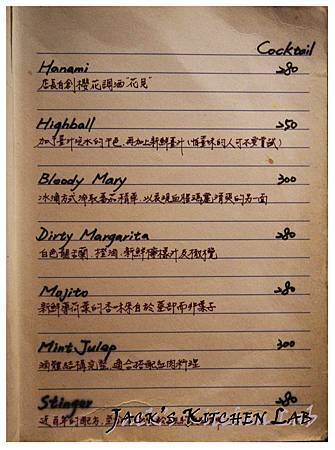 Cocktail
Hanami 280
店長自創櫻花調酒"花見"
Highball 250
加了薑汁汽水的平色,再加上新鮮薑汁(怕薑味的人可不要嘗試)
Bloody Mary 300
冰滴方式淬取番茄精華,以表現血腥瑪麗清爽的另一面
Dirty Margarita 280
白色龍舌蘭、橙酒、新鮮檸檬汁及橄欖
Mojito 280
新鮮薄荷葉的香味來自於莖部而非葉子
Mint Julap 300
酒體結構完整,適合搭配紅肉料理
Stinger 280
近百年的配方,
JACK'S KITCHEN LAB